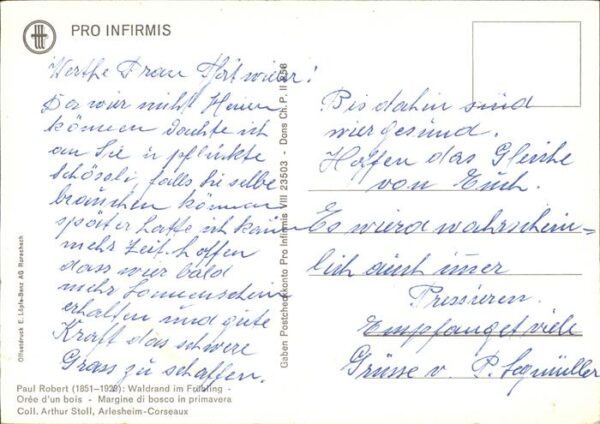 PRO INFIRMIS
Werthe Frau
Da wir nicht Heuen
können dachte ich
an Sie u pflückte
Schösali, falls Sie selbe
brauchen können
später hatte ich kaum
mehr Zeit. hoffen
dass wier bald
mehr Sonnenschein
erhalten und gute
Kraft das schwere
Grass zu schaffen.
Bis dahin sind
wier gesund.
Hoffen das Gleiche
von Euch.
Es wierd wahrschein-
lich auch imer
Pressieren.
Empfanget viele
Grüsse v. P.
Paul Robert (1851–1923): Waldrand im Frühling -
Orée d'un bois - Margine di bosco in primavera
Coll. Arthur Stoll, Arlesheim-Corseaux
Offsetdruck E. Löpfe-Benz AG Rorschach
Gaben Postcheckkonto Pro Infirmis VIII 23503 - Dons Ch. P. II 258